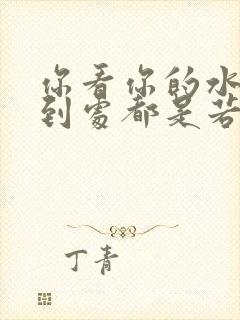 你看你的水
到處都是若
丁青